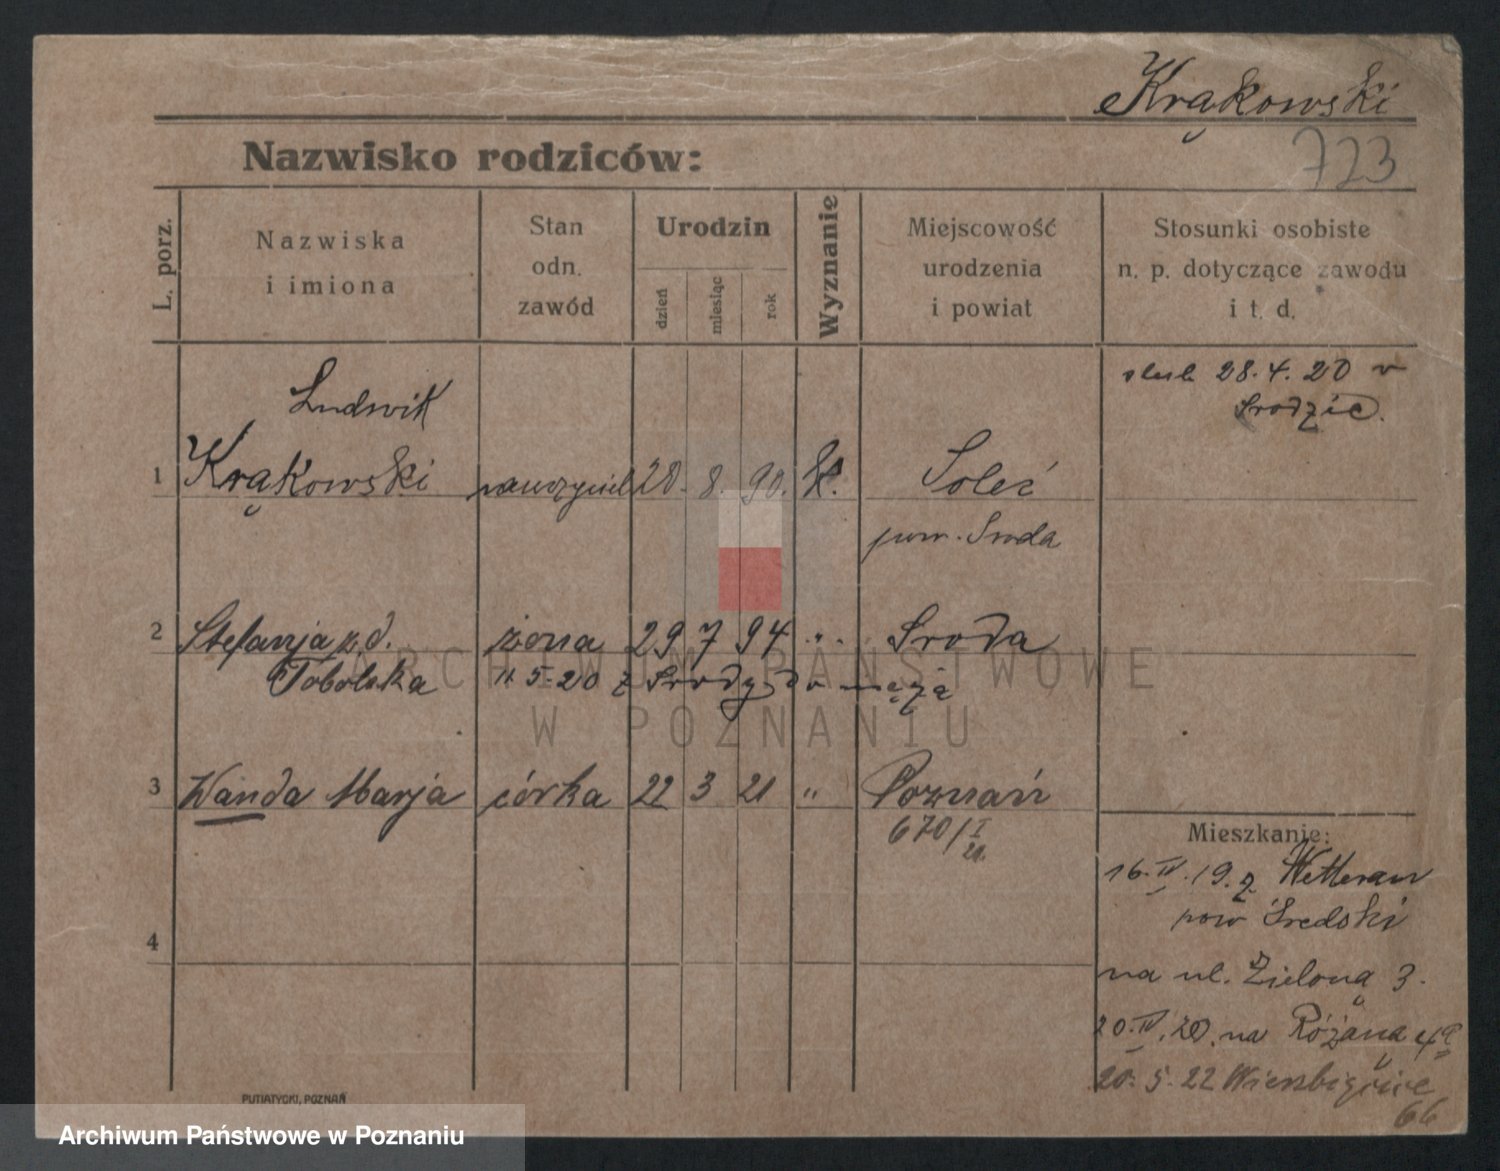 Krąkowski
Nazwisko rodziców:
723
L. porz.
Nazwiska
i imiona
Stan
odn.
zawód
Urodzin
dzień
miesiąc
rok
Wyznanie
Miejscowość
urodzenia
i powiat
Stosunki osobiste
n. p. dotyczące zawodu
i t. d.
ślub 28.4.20 w
Środzie.
Ludwik
1 Krąkowski nauczyciel 28. 8. 90. k. Soleć
pow. Środa
2 Stefanja z d. żona 29 7 94 " Środa
Tobolska 11 5-20 z Środy do męża
3 Wanda Marja córka 22 3 21 " Poznań
670/I
21.
4
Mieszkanie:
16.IV.19. z
pow Średski
na ul. Zieloną 3.
20.IV.20. na Różaną 4a
20.5.22 Wierzbięcice
66
PUTIATYCKI, POZNAŃ
ARCHIWUM PAŃSTWOWE
W POZNANIU
Archiwum Państwowe w Poznaniu